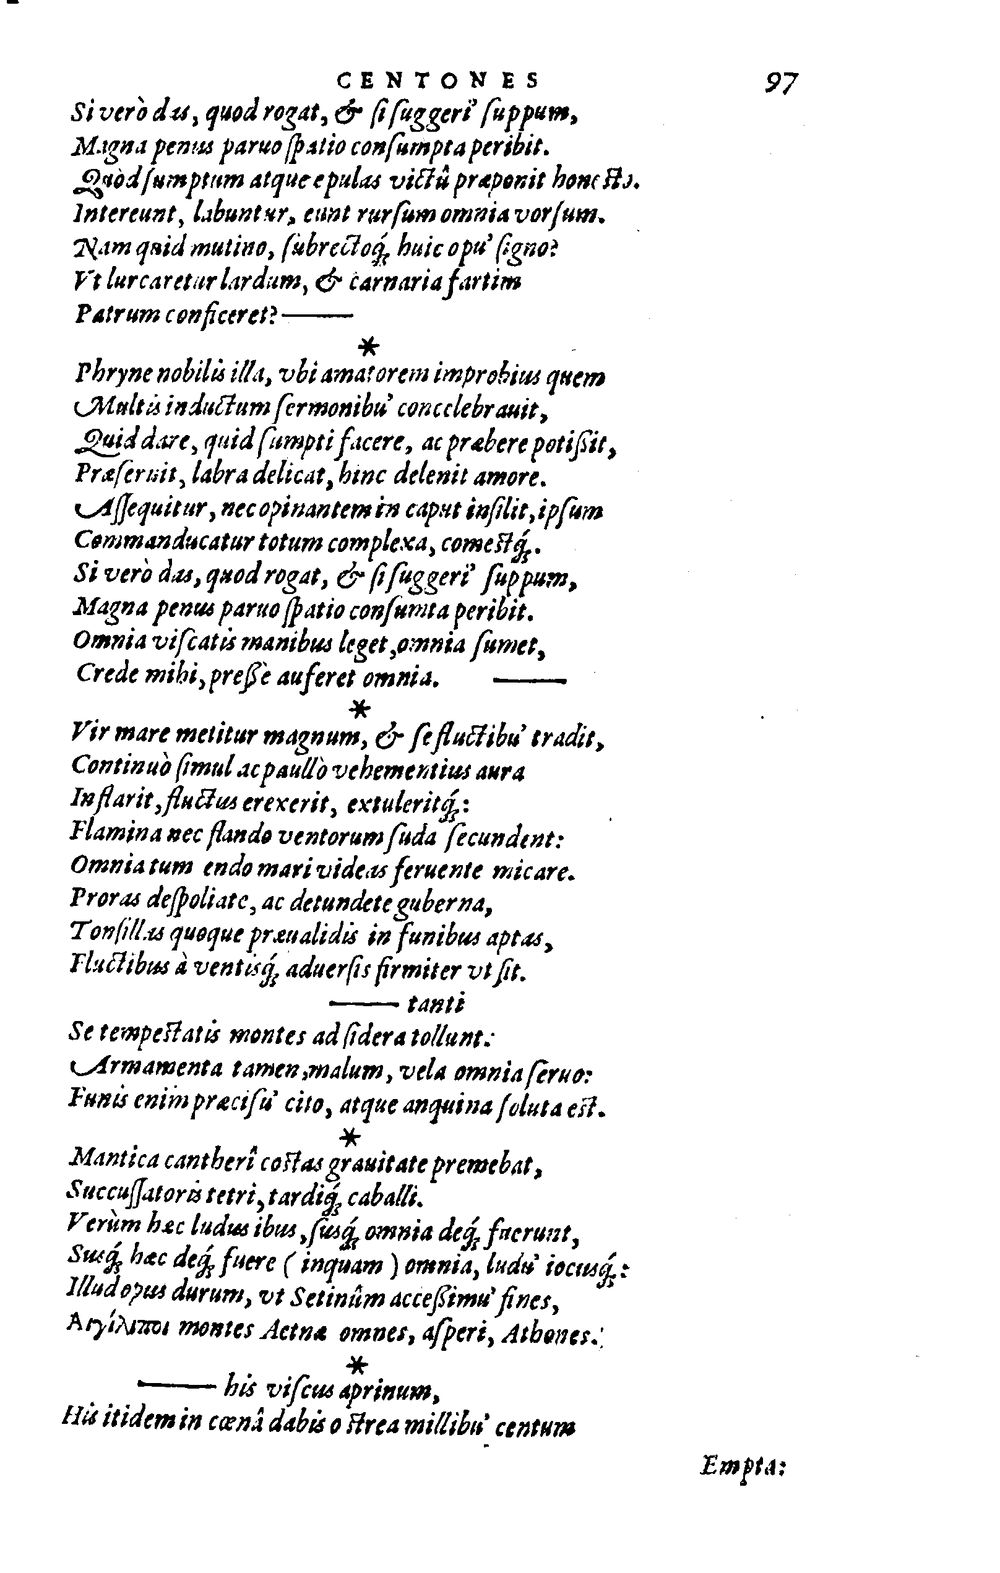 CENTONES 97
Si verò das, quod rogat, & si suggeri' suppum,
Magna penus paruo spatio consumpta peribit.
Quòd sumptum atque epulas victû præponit honesto.
Intereunt, labuntur, eunt rursum omnia vorsum.
Nam quid mutino, subrectoq́; huic opu' signo?
Vt lurcaretur lardum, & carnaria fartim
Patrum conficeret? ——
*
Phryne nobilis illa, vbi amatorem improbius quem
Multis inductum sermonibu' concelebrauit,
Quid dare, quid sumpti facere, ac præbere potissit,
Præseruit, labra delicat, hinc delenit amore.
Assequitur, nec opinantem in caput insilit, ipsum
Commanducatur totum complexa, comestq́;.
Si verò das, quod rogat, & si suggeri' suppum,
Magna penus paruo spatio consumta peribit.
Omnia viscatis manibus leget, omnia sumet,
Crede mihi, pressè auferet omnia. ——
*
Vir mare metitur magnum, & se fluctibu' tradit,
Continuò simul ac paullò vehementius aura
Inflarit, fluctus erexerit, extuleritq́;:
Flamina nec flando ventorum suda secundent:
Omnia tum endo mari videas feruente micare.
Proras despoliate, ac detundete guberna,
Tonsillas quoque præualidis in funibus aptas,
Fluctibus à ventisq́; aduersis firmiter vt sit.
—— tanti
Se tempestatis montes ad sidera tollunt:
Armamenta tamen, malum, vela omnia seruo:
Funis enim præcisu' cito, atque anquina soluta est.
*
Mantica cantherî costas grauitate premebat,
Succussatoris tetri, tardiq́; caballi.
Verùm hæc ludus ibus, susq́; omnia deq́; fuerunt,
Susq́; hæc deq́; fuere ( inquam ) omnia, ludu' iocusq́;:
Illud opus durum, vt Setinûm accessimu' fines,
Αἰγίλιποι montes Aetnæ omnes, asperi, Athones.
*
—— his viscus aprinum,
His itidem in cœnâ dabis ostrea millibu' centum
Empta: